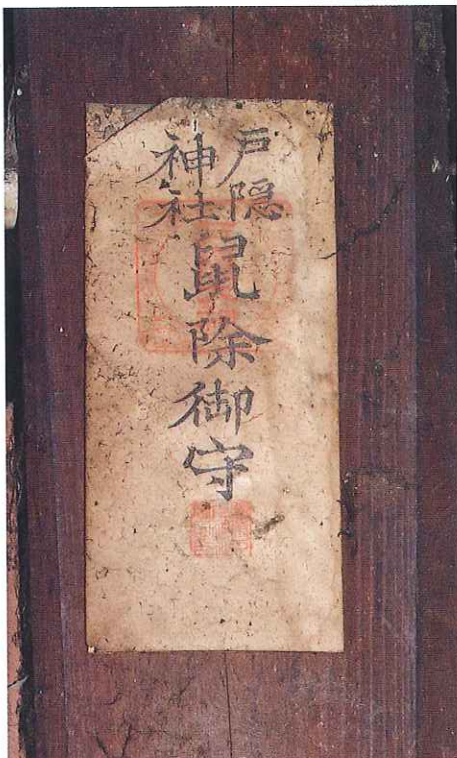 戸隠
神社
鼠除御守